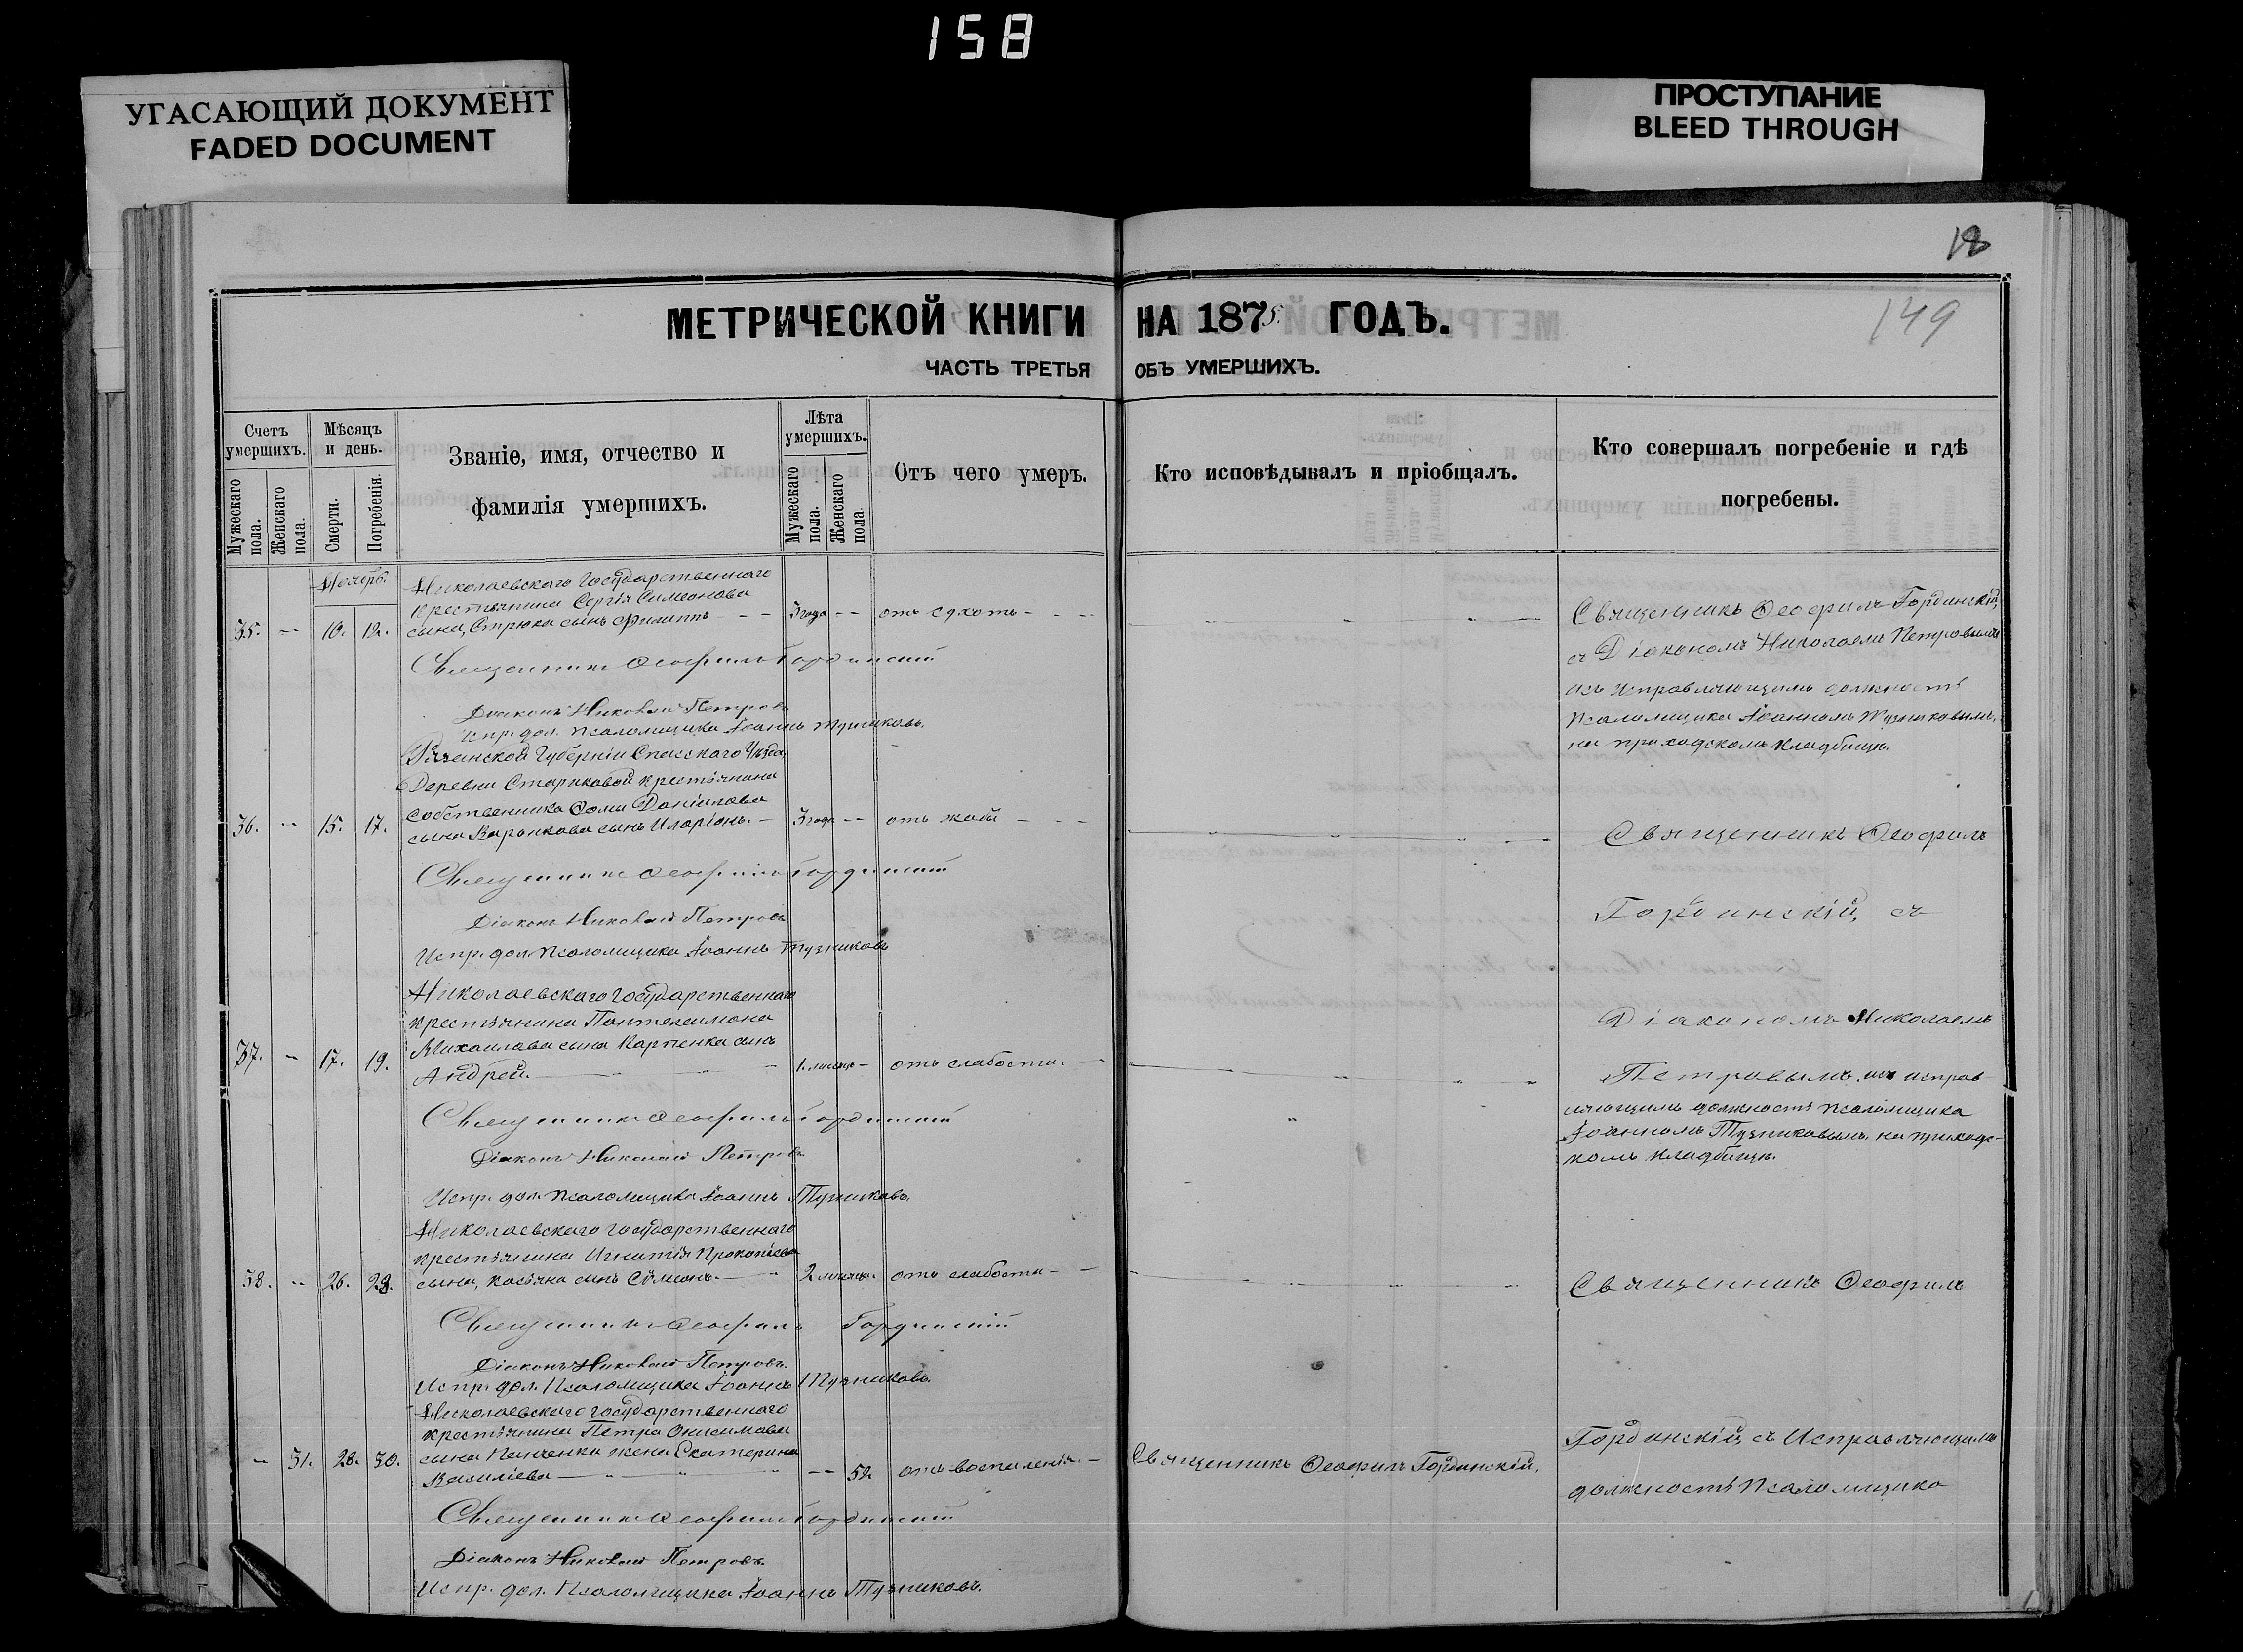 158
УГАСАЮЩИЙ ДОКУМЕНТ
FADED DOCUMENT
ПРОСТУПАНИЕ
BLEED THROUGH
18
149
МЕТРИЧЕСКОЙ КНИГИ НА 1875 ГОДЪ.
ЧАСТЬ ТРЕТЬЯ ОБЪ УМЕРШИХЪ.
Счетъ умершихъ.
Мужескаго пола.
Женскаго пола.
Мѣсяцъ и день.
Смерти.
Погребенія.
Званіе, имя, отчество и
фамилія умершихъ.
Лѣта умершихъ.
Мужескаго пола.
Женскаго пола.
Отъ чего умеръ.
Кто исповѣдывалъ и пріобщалъ.
Кто совершалъ погребеніе и гдѣ
погребены.
Ноябрь.
Николаевскаго Государственнаго
крестьянина Сергія Симеонова
35. 10. 12. сына, Стрюка сынъ Филиппъ 3 года отъ сухотъ
Священникъ Ѳеофилъ Гординскій
Діаконъ Николай Петровъ
Испр. дол. Псаломщика Іоаннъ Тузниковъ.
Священникъ Ѳеофилъ Гординскій,
съ Діакономъ Николаемъ Петровымъ
исправляющимъ должность
Псаломщика Іоанномъ Тузниковымъ,
на приходскомъ кладбищѣ.
Рязанской Губерніи Спасскаго Уѣзда,
Деревни Стариковой крестьянина
собственника Ѳомы Даніилова
36. 15. 17. сына Воронкова сынъ Иларіонъ. 3 года отъ жабы
Священникъ Ѳеофилъ Гординскій
Діаконъ Николай Петровъ
Испр. дол. Псаломщика Іоаннъ Тузниковъ
Священникъ Ѳеофилъ
Гординскій, съ
Николаевскаго Государственнаго
крестьянина Пантелеимона
Михаилова сына Карпенка сынъ
37. 17. 19. Андрей. 1. мѣсяцъ отъ слабости.
Священникъ Ѳеофилъ Гординскій
Діаконъ Николай Петровъ
Испр. дол. Псаломщика Іоаннъ Тузниковъ.
Діакономъ Николаемъ
Петровымъ, исправ-
ляющимъ должность псаломщика
Іоанномъ Тузниковымъ, на приходс-
комъ кладбищѣ.
Николаевскаго Государственнаго
крестьянина Игнатія Прокопіева
38. 26. 28. сына, Касьяна сынъ Сѵмеонъ. 2 мѣсяца. отъ слабости
Священникъ Ѳеофилъ Гординскій
Діаконъ Николай Петровъ.
Испр. дол. Псаломщика Іоаннъ Тузниковъ.
Священникъ Ѳеофилъ
Николаевскаго Государственнаго
крестьянина Петра Онисимова
31. 28. 30. сына Панченка жена Екатерина
Василіева 52 отъ воспаленія. Священникъ Ѳеофилъ Гординскій.
Священникъ Ѳеофилъ Гординскій
Діаконъ Николай Петровъ
Испр. дол. Псаломщика Іоаннъ Тузниковъ.
Гординскій, съ Исправляющимъ
должность Псаломщика